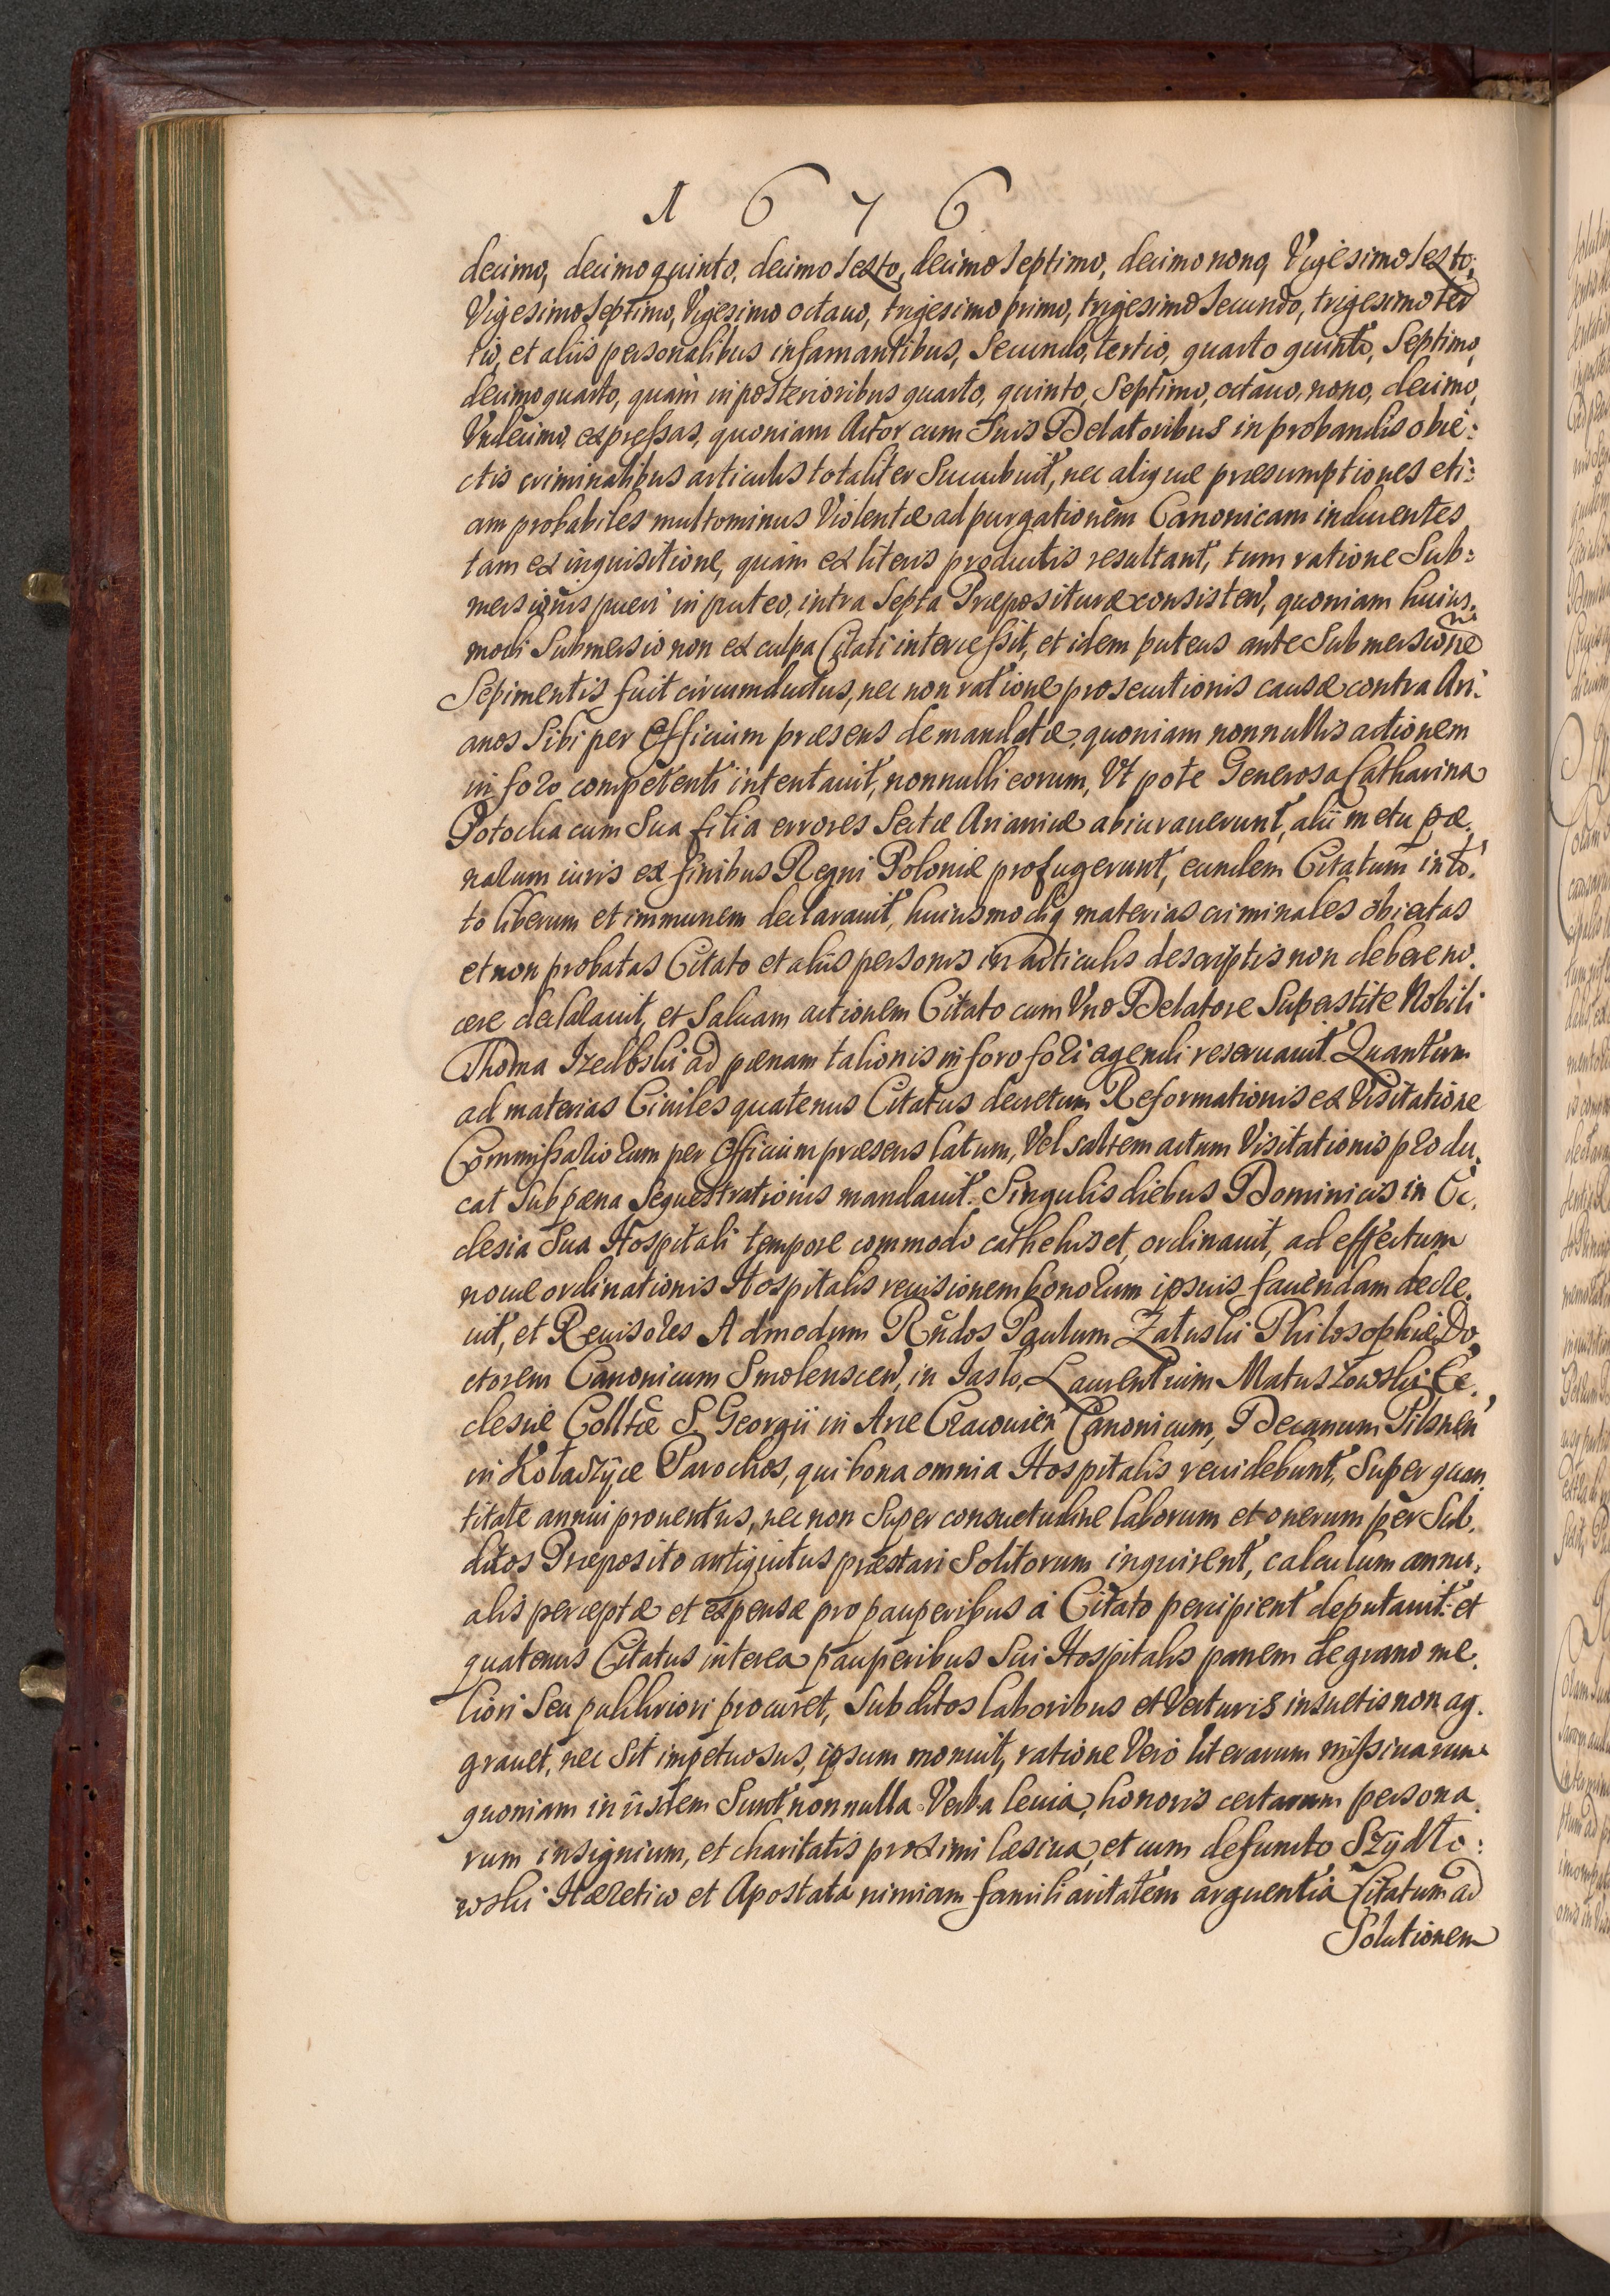 1676
decimo, decimo quinto, decimo sexto, decimo septimo, decimo nono, Vigesimo sexto,
Vigesimo septimo, Vigesimo octauo, trigesimo primo, trigesimo secundo, trigesimo ter
tio, et aliis personalibus infamantibus, secundo, tertio, quarto quinto, septimo,
decimo quarto, quàm in posterioribus quarto, quinto, septimo, octauo, nono, decimo,
Vndecimo, expressas, quoniam Actor cum suis Delatoribus in probandis obie:
ctis criminalibus articulis totaliter succubuit, nec aliquæ præsumptiones eti:
am probabiles multominus Violentæ ad purgationem Canonicam inducentes
tam ex inquisitione, quàm ex literis productis resultant, tum ratione sub:
mersionis pueri in puteo, intra septa Præposituræ consisten, quoniam huius.
modi submersio non ex culpa Citati intercessit, et idem puteus ante submersionē
sepimentis fuit circumductus, nec non ratione prosecutionis causæ contra Ari.
anos sibi per Officium præsens demandatæ, quoniam nonnullis actionem
in foro competenti intentauit, nonnulli eorum, Vt pote Generosa Catharina
Potocka cum sua filia errores sectæ Arianicæ abiurauerunt, alii metu pæ.
nalum iuris ex finibus Regni Poloniæ profugerunt, eundem Citatum in to.
to liberum et immunem declarauit, huiusmodiq materias criminales obiectas
et non probatas Citato et aliis personis in articulis descriptis non debere no.
cere declarauit, et saluam actionem Citato cum Vno Delatore superstite Nobili
Thoma ad pænam talionis in foro fori agendi reseruauit. Quantum
ad materias Ciuiles quatenus Citatus decretum Reformationis ex Visitatione
Commissariorum per Officium præsens latum, Vel saltem actum Visitationis produ.
cat sub pæna sequestrationis mandauit. Singulis diebus Dominicis in Ec.
clesia sua Hospitali tempore commodo catheliset, ordinauit, ad effectum
nouæ ordinationis Hospitalis reuisionem bonorum ipsius fauendam decre.
uit, et Reuisores Admodum Rndos Paulum Zatuski Philosophiæ Do.
ctorem Canonicum Smolenscen, in Jaslo, Laurentium Matuszowski Ec.
clesiæ Colltæ S. Georgii in Arce Cracouien Canonicum, Decanum Pilsnen
in Kołaczyce Parochos, qui bona omnia Hospitalis reuidebunt, super quan.
titate annui prouentus, nec non super consuetudine laborum et onerum per sub.
ditos Præposito antiquitus præstari solitorum inquirent, calculum annu.
alis perceptæ et expensæ pro pauperibus à Citato percipient deputauit: et
quatenus Citatus interea pauperibus sui Hospitalis panem de grano me.
liori seu pulchriori procuret, subditos laboribus et Vecturis insuetis non ag.
grauet, nec sit impetuosus, ipsum monuit, ratione Verò literarum missiuarum
quoniam in iisdem sunt nonnulla Verba leuia, honoris certarum persona.
rum insignium, et charitatis proximi læsiua, et cum defuncto Szydło:
wski Hæretico et Apostata nimiam familiaritatem arguentia Citatum ad
Solutionem